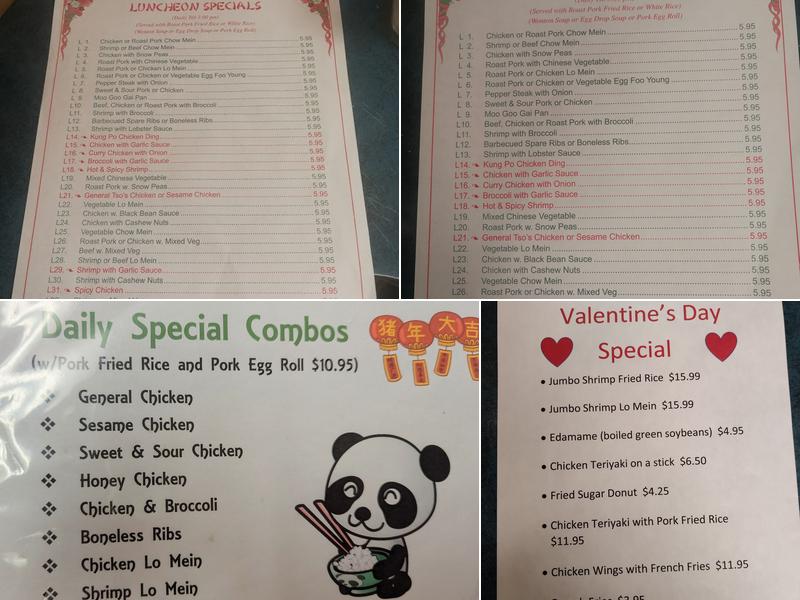 LUNCHEON SPECIALS
(Daily Till 3:00 pm)
(Served with Roast Pork Fried Rice or White Rice)
(Wonton Soup or Egg Drop Soup or Pork Egg Roll)
L 1. Chicken or Roast Pork Chow Mein 5.95
L 2. Shrimp or Beef Chow Mein 5.95
L 3. Chicken with Snow Peas 5.95
L 4. Roast Pork with Chinese Vegetable 5.95
L 5. Roast Pork or Chicken Lo Mein 5.95
L 6. Roast Pork or Chicken or Vegetable Egg Foo Young 5.95
L 7. Pepper Steak with Onion 5.95
L 8. Sweet & Sour Pork or Chicken 5.95
L 9. Moo Goo Gai Pan 5.95
L10. Beef, Chicken or Roast Pork with Broccoli 5.95
L11. Shrimp with Broccoli 5.95
L12. Barbecued Spare Ribs or Boneless Ribs 5.95
L13. Shrimp with Lobster Sauce 5.95
L14. Kung Po Chicken Ding 5.95
L15. Chicken with Garlic Sauce 5.95
L16. Curry Chicken with Onion 5.95
L17. Broccoli with Garlic Sauce 5.95
L18. Hot & Spicy Shrimp 5.95
L19. Mixed Chinese Vegetable 5.95
L20. Roast Pork w. Snow Peas 5.95
L21. General Tso's Chicken or Sesame Chicken 5.95
L22. Vegetable Lo Mein 5.95
L23. Chicken w. Black Bean Sauce 5.95
L24. Chicken with Cashew Nuts 5.95
L25. Vegetable Chow Mein 5.95
L26. Roast Pork or Chicken w. Mixed Veg 5.95
L27. Beef w. Mixed Veg 5.95
L28. Shrimp or Beef Lo Mein 5.95
L29. Shrimp with Garlic Sauce 5.95
L30. Shrimp with Cashew Nuts 5.95
L31. Spicy Chicken 5.95
(Served with Roast Pork Fried Rice or White Rice)
(Wonton Soup or Egg Drop Soup or Pork Egg Roll)
L 1. Chicken or Roast Pork Chow Mein 5.95
L 2. Shrimp or Beef Chow Mein 5.95
L 3. Chicken with Snow Peas 5.95
L 4. Roast Pork with Chinese Vegetable 5.95
L 5. Roast Pork or Chicken Lo Mein 5.95
L 6. Roast Pork or Chicken or Vegetable Egg Foo Young 5.95
L 7. Pepper Steak with Onion 5.95
L 8. Sweet & Sour Pork or Chicken 5.95
L 9. Moo Goo Gai Pan 5.95
L10. Beef, Chicken or Roast Pork with Broccoli 5.95
L11. Shrimp with Broccoli 5.95
L12. Barbecued Spare Ribs or Boneless Ribs 5.95
L13. Shrimp with Lobster Sauce 5.95
L14. Kung Po Chicken Ding 5.95
L15. Chicken with Garlic Sauce 5.95
L16. Curry Chicken with Onion 5.95
L17. Broccoli with Garlic Sauce 5.95
L18. Hot & Spicy Shrimp 5.95
L19. Mixed Chinese Vegetable 5.95
L20. Roast Pork w. Snow Peas 5.95
L21. General Tso's Chicken or Sesame Chicken 5.95
L22. Vegetable Lo Mein 5.95
L23. Chicken w. Black Bean Sauce 5.95
L24. Chicken with Cashew Nuts 5.95
L25. Vegetable Chow Mein 5.95
L26. Roast Pork or Chicken w. Mixed Veg 5.95
Daily Special Combos
猪年大吉
(w/Pork Fried Rice and Pork Egg Roll $10.95)
General Chicken
Sesame Chicken
Sweet & Sour Chicken
Honey Chicken
Chicken & Broccoli
Boneless Ribs
Chicken Lo Mein
Shrimp Lo Mein
Valentine's Day
Special
• Jumbo Shrimp Fried Rice $15.99
• Jumbo Shrimp Lo Mein $15.99
• Edamame (boiled green soybeans) $4.95
• Chicken Teriyaki on a stick $6.50
• Fried Sugar Donut $4.25
• Chicken Teriyaki with Pork Fried Rice
$11.95
• Chicken Wings with French Fries $11.95